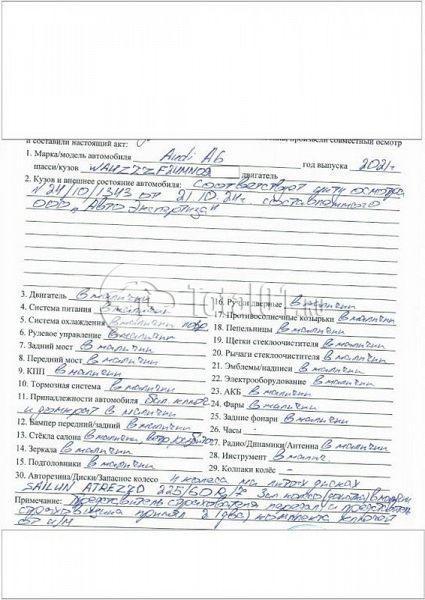 и составили настоящий акт:
произвели совместный осмотр
1. Марка/модель автомобиля Audi A6
год выпуска 2021г
шасси/кузов
двигатель
2. Кузов и внешнее состояние автомобиля: Соответствует акту осмотра
N 24/10/1343 от 21.10.24г. составленного
ООО "Авто Экспертиза"
3. Двигатель в наличии
4. Система питания в наличии
5. Система охлаждения в наличии
6. Рулевое управление в наличии
7. Задний мост в наличии
8. Передний мост в наличии
9. КПП в наличии
10. Тормозная система в наличии
11. Принадлежности автомобиля бал. ключ
и домкрат в наличии
12. Бампер передний/задний в наличии
13. Стёкла салона в наличии
14. Зеркала в наличии
15. Подголовники в наличии
16. Ручки дверные в наличии
17. Противосолнечные козырьки в наличии
18. Пепельницы в наличии
19. Щетки стеклоочистителя в наличии
20. Рычаги стеклоочистителя в наличии
21. Эмблемы/надписи в наличии
22. Электрооборудование в наличии
23. АКБ в наличии
24. Фары в наличии
25. Задние фонари в наличии
26. Часы -
27. Радио/Динамики/Антенна в наличии
28. Инструмент в налич
29. Колпаки колёс -
30. Авторезина/Диски/Запасное колесо 4 колеса на литых дисках
SAILUN ATREZZO 225/60 R17
Примечание: Представитель страхователя передал и представитель
страховщика принял 2 (два) комплекта ключей
от а/м